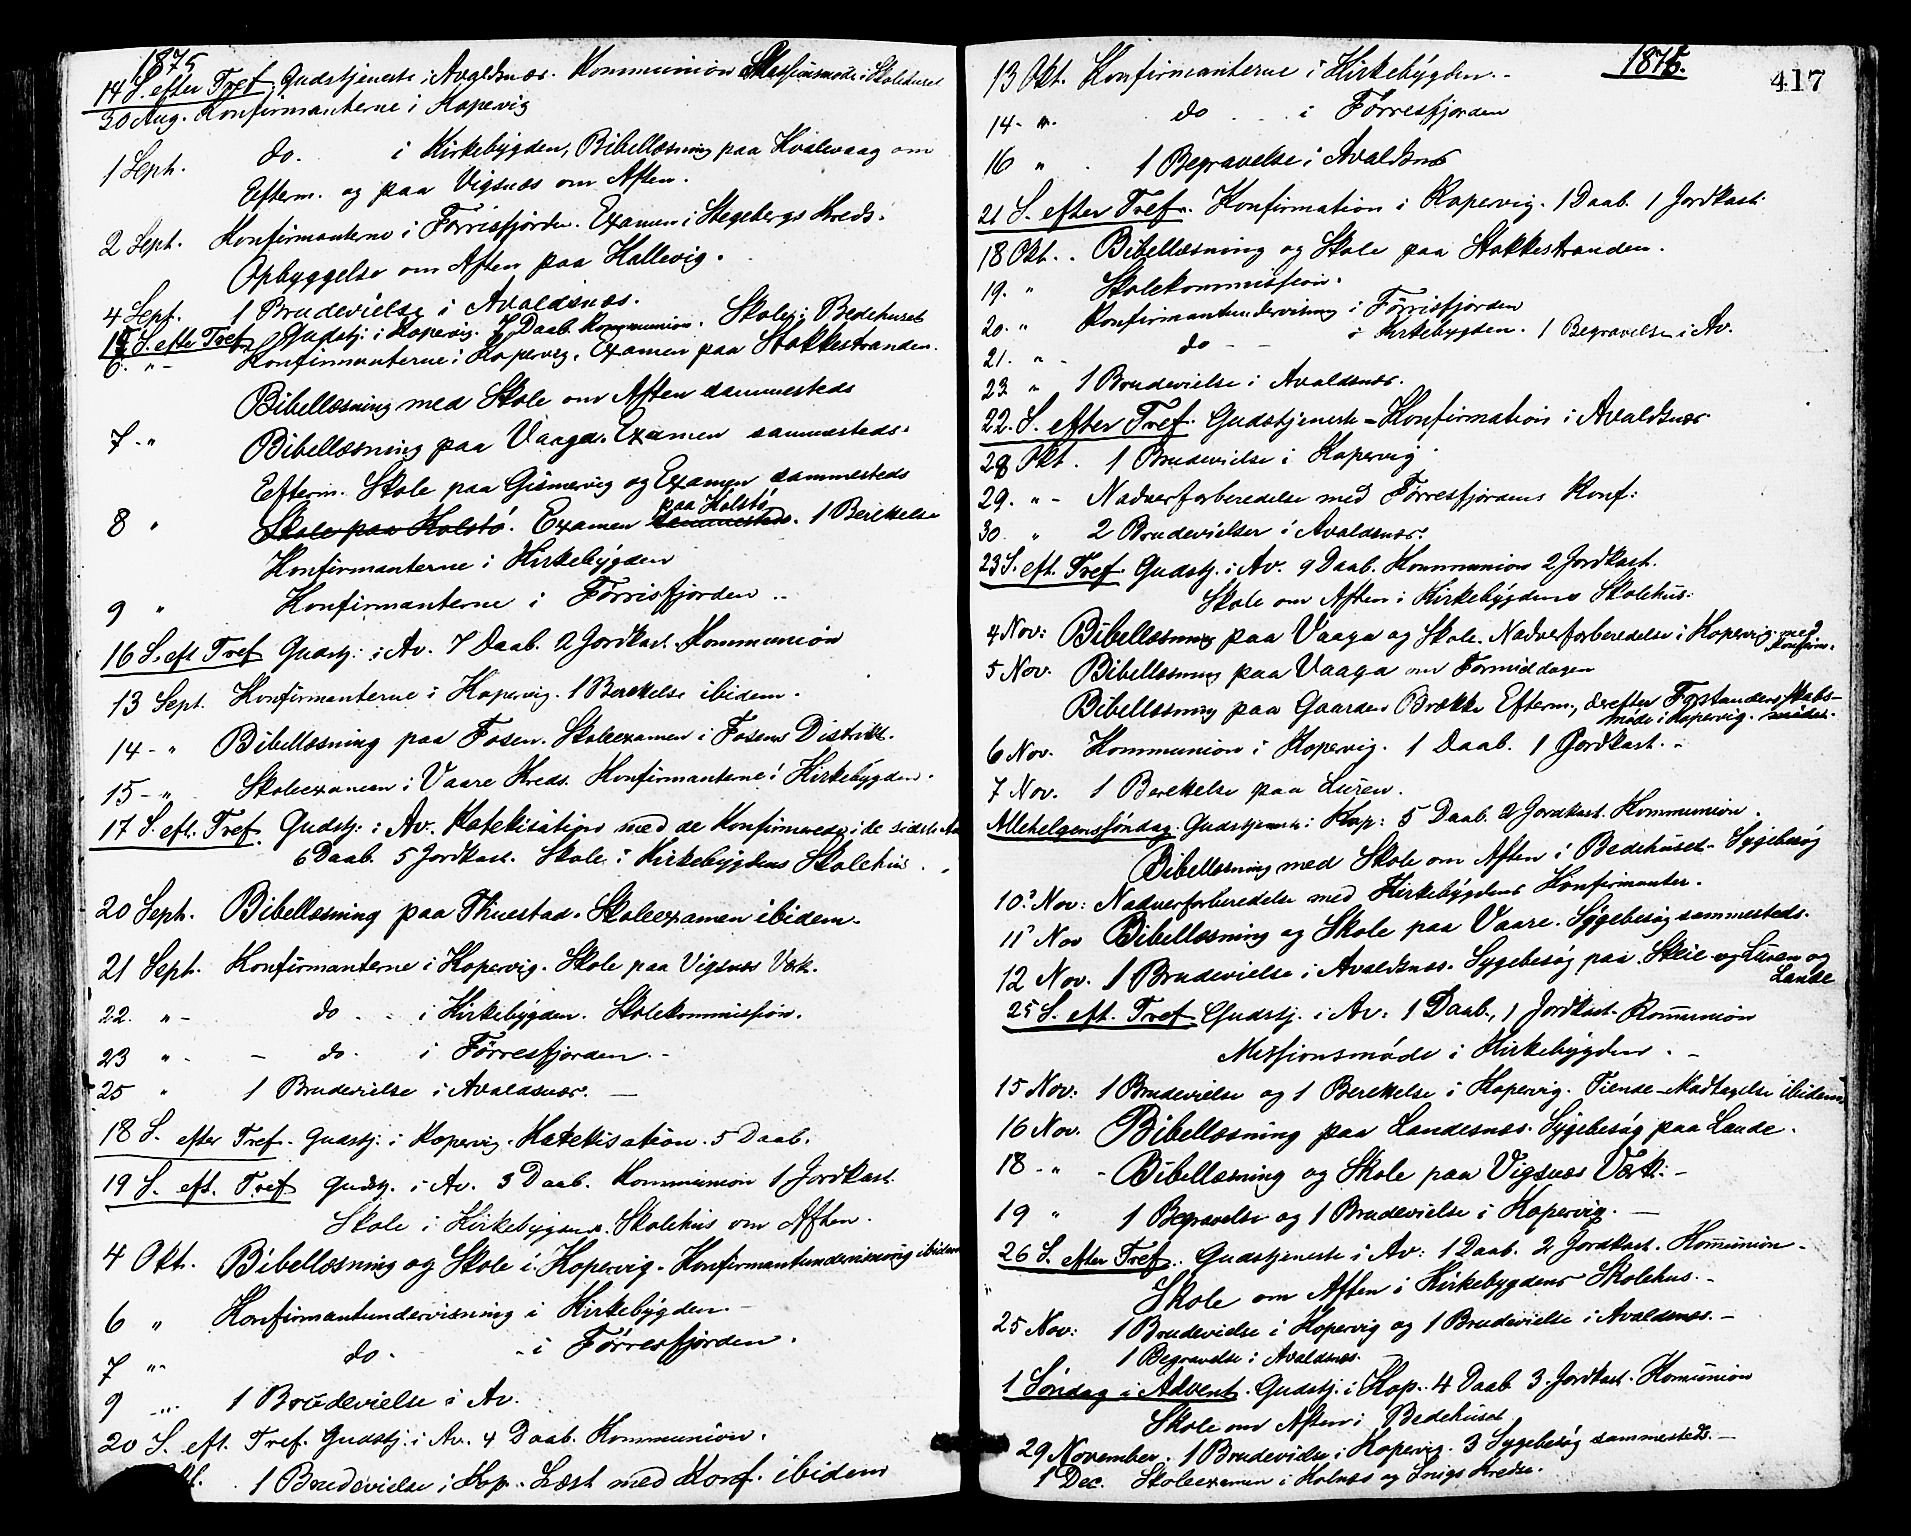 1875
14 S. efter Tref. Gudstjeneste i Avaldsnæs. Kommunion Missionsmøde i Skolehuset
30 Aug. Konfirmanterne i Kopervig
1 Sept. do. i Kirkebygden, Bibellæsning paa Kvalevaag om
Efterm. og paa Vigsnæs om Aften.
2 Sept. Konfirmanterne i Førrisfjorden. Examen i Stegebergs Kreds.
Opbyggelse om Aften paa Hallevig.
4 Sept. 1 Brudevielse i Avaldsnæs.
15 S. efter Tref. Gudstj. i Kopervig. 7 Daab. Kommunion. Skole i Bedehuset
6. " - Konfirmanterne i Kopervig. Examen paa Stokkestranden.
Bibellæsning med Skole om Aften sammesteds
7 - " Bibellæsning paa Vaaga. Examen sammesteds.
Efterm. Skole paa Gismervig og Examen sammesteds
paa Kolstø
8 " Skole paa Kolstø. Examen sammesteds. 1 Berettelse
Konfirmanterne i Kirkebygden
9 " Konfirmanterne i Førrisfjorden ..
16 S. eft Tref Gudstj: i Av. 7 Daab. 2 Jordkast. Kommunion
13 Sept. Konfirmanterne i Kopervig. 1 Berettelse ibidem.
14 - " Bibellæsning paa Fosen. Skoleexamen i Fosens Distrikt.
15 - " Skoleexamen i Vaare Kreds. Konfirmanterne i Kirkebygden.
17 S. eft. Tref. Gudstj: i Av. Katekisation med de Konfirmerede i de sidste
6 Daab. 5 Jordkast. Skole i Kirkebygdens Skolehus.
20 Sept. Bibellæsning paa Thuestad. Skoleexamen ibidem.
21 Sept. Konfirmanterne i Kopervig. Skole paa Vigsnæs Værk.
22. " - do - i Kirkebygden. Skolekommission.
23 " - - do. i Førresfjorden. -
25 " 1 Brudevielse i Avaldsnæs. -
18 S. efter Tref. Gudstj: i Kopervig. Katekisation. 5 Daab.
19 S. eft. Tref Gudstj. i Av. 3 Daab. Kommunion 1 Jordkast.
Skole i Kirkebygdens Skolehus om Aften.
4 Okt. Bibellæsning og Skole i Kopervig. Konfirmantundervisning ibidem
6 " Konfirmantundervisning i Kirkebygden. -
7 " - do - - i Førresfjorden.
9 - " 1 Brudevielse i Av.
20 S. eft. Tref. Gudstj. i Av. 4 Daab. Kommunion.
1 Brudevielse i Kop. Læst med Konf. ibidem
1875.
417
13 Okt. Konfirmanterne i Kirkebygden. -
14 - " do i Førresfjorden
16 " 1 Begravelse i Avaldsnæs
21 S. efter Tref. Konfirmation i Kopervig. 1 Daab. 1 Jordkast.
18 Okt. Bibellæsning og Skole paa Stokkestranden.
19. " Skolekommission.
20. " Konfirmantundervisning i Førrisfjorden
21. " - do - - i Kirkebygden. 1 Begravelse i Av.
23 " 1 Brudevielse i Avaldsnæs.
22. S. efter Tref. Gudstjeneste - Konfirmation i Avaldsnæs
28 Okt. 1 Brudevielse i Kopervig
29. " - Nadverforberedelse med Førresfjordens Konf:
30. " 2 Brudevielser i Avaldsnæs.
23 S. eft. Tref. Gudstj. i Av. 9 Daab. Kommunion 2 Jordkast.
Skole om Aften i Kirkebygdens Skolehus.
4 Nov: Bibellæsning paa Vaaga og Skole. Nadverforberedelse i Kopervig med
Konfirm.
5 Nov. Bibellæsning paa Vaaga om Formiddagen
Bibellæsning paa Gaarden Brække Efterm., derefter Forstanderskabs-
møde i Kopervig. møder.
6 Nov. Kommunion i Kopervig. 1 Daab. 1 Jordkast. -
7 Nov. 1 Berettelse paa Luren.
Allehelgensøndag. Gudstjeneste i Kop: 5 Daab. 2 Jordkast. Kommunion.
Bibellæsning med Skole om Aften i Bedehuset - Sygebesøg
10. Nov: Nadverforberedelse med Kirkebygdens Konfirmanter.
11 Nov Bibellæsning og Skole paa Vaare. Sygebesøg sammesteds.
12 Nov. 1 Brudevielse i Avaldsnæs. Sygebesøg paa Skeie og Luren og
Lande
25 S. eft. Tref. Gudstj. i Av: 1 Daab., 1 Jordkast. Kommunion
Missionsmøde i Kirkebygden. -
15 Nov: 1 Brudevielse og 1 Berettelse i Kopervig. Tiende-Modtagelse ibidem
16 Nov. Bibellæsning paa Landesnæs. Sygebesøg paa Lande.
18 - " - Bibellæsning og Skole paa Vigsnæs Værk. -
19 " 1 Begravelse og 1 Brudevielse i Kopervig. -
26 S. efter Tref. Gudstjeneste i Av: 1 Daab. 2 Jordkast. Kommunion -
Skole om Aften i Kirkebygdens Skolehus. -
25 Nov: 1 Brudevielse i Kopervig og 1 Brudevielse i Avaldsnæs. -
1 Begravelse i Avaldsnæs.
1 Søndag i Advent. Gudstj. i Kop. 4 Daab 3 Jordkast. Kommunion
Skole om Aften i Bedehuset
29 November. 1 Brudevielse i Kopervig. 3 Sygebesøg sammesteds. -
1 Dec. Skoleexamen i Kolnæs og Kredse.